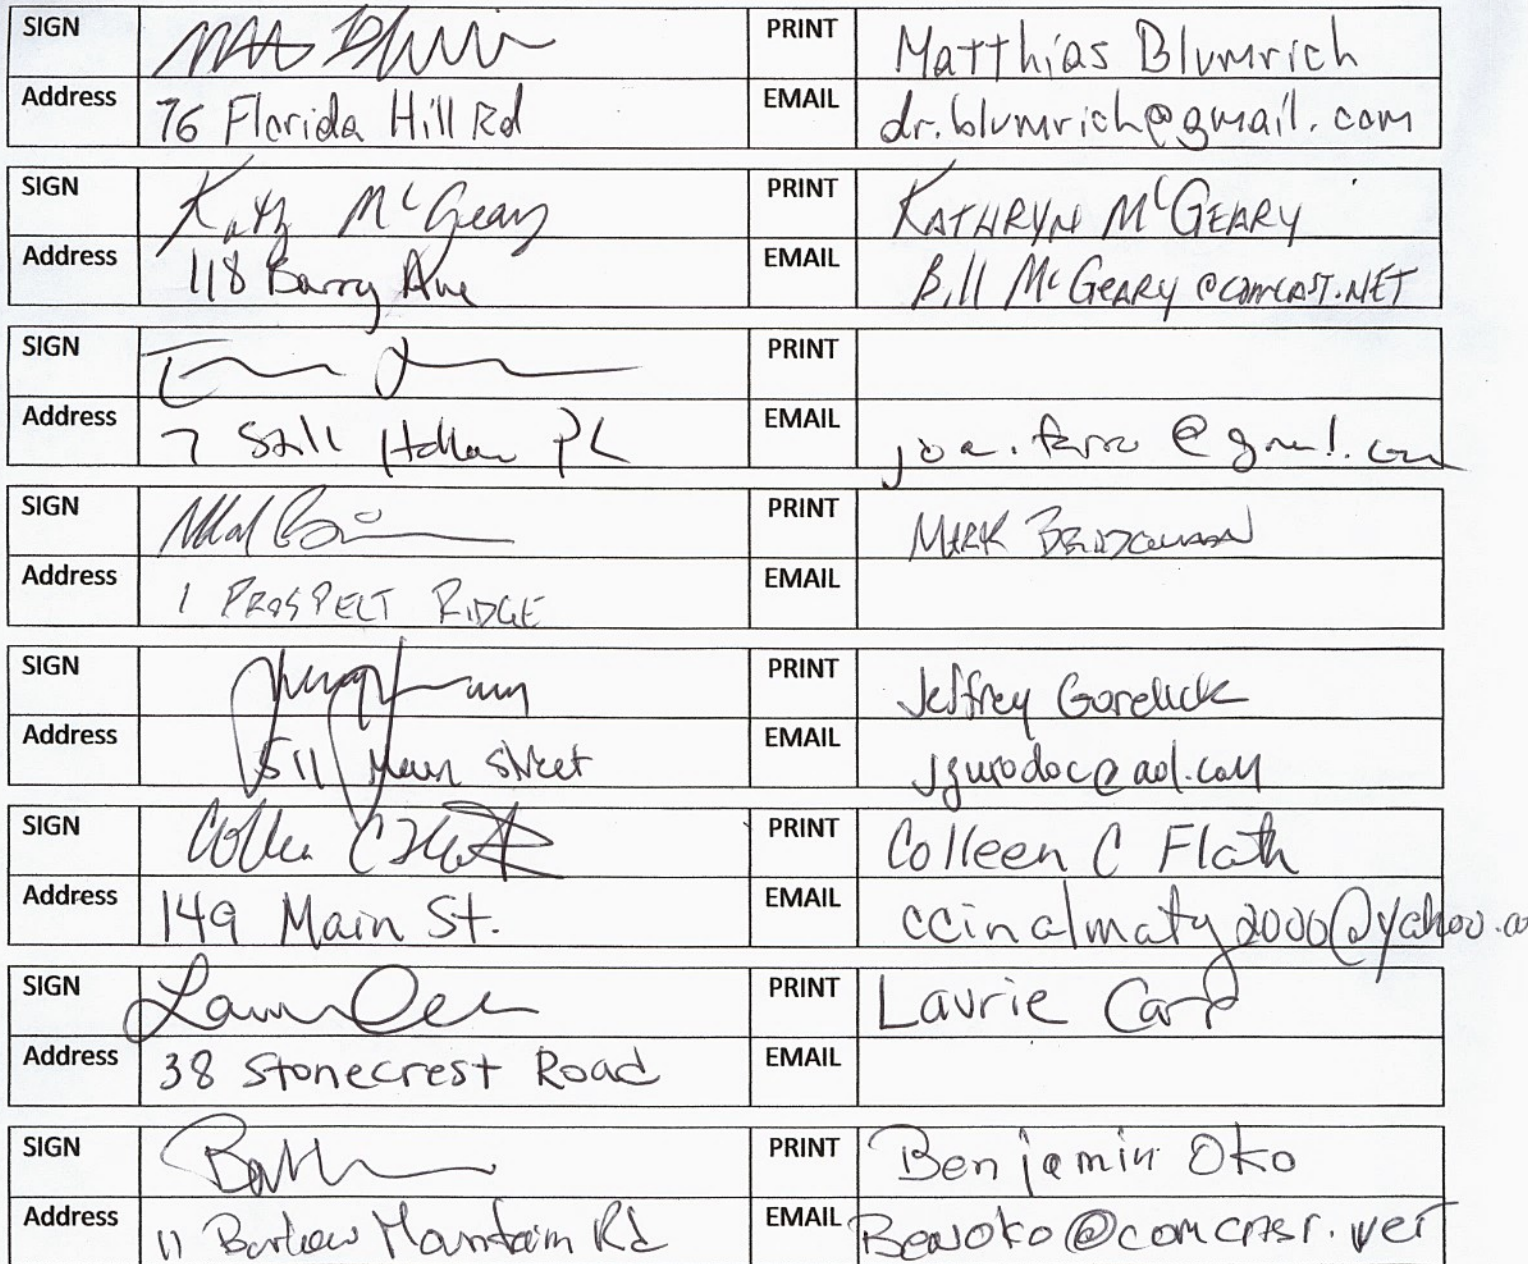 SIGN PRINT Matthias Blumrich
Address 76 Florida Hill Rd EMAIL dr.blumrich@gmail.com
SIGN Kathy McGeary PRINT KATHRYN McGEARY
Address 118 Barry Ave EMAIL Bill McGEARY@COMCAST.NET
SIGN PRINT
Address 7 Still Hollow PL EMAIL
SIGN PRINT MARK
Address 1 PROSPECT RIDGE EMAIL
SIGN PRINT Jeffrey Gorelick
Address 511 Main Street EMAIL
SIGN PRINT Colleen C Flath
Address 149 Main St. EMAIL ccinalmaty2000@yahoo.co
SIGN PRINT Laurie Carp
Address 38 Stonecrest Road EMAIL
SIGN PRINT Benjamin Oko
Address 11 Barlow Mountain Rd EMAIL BENOKO@COMCAST.NET